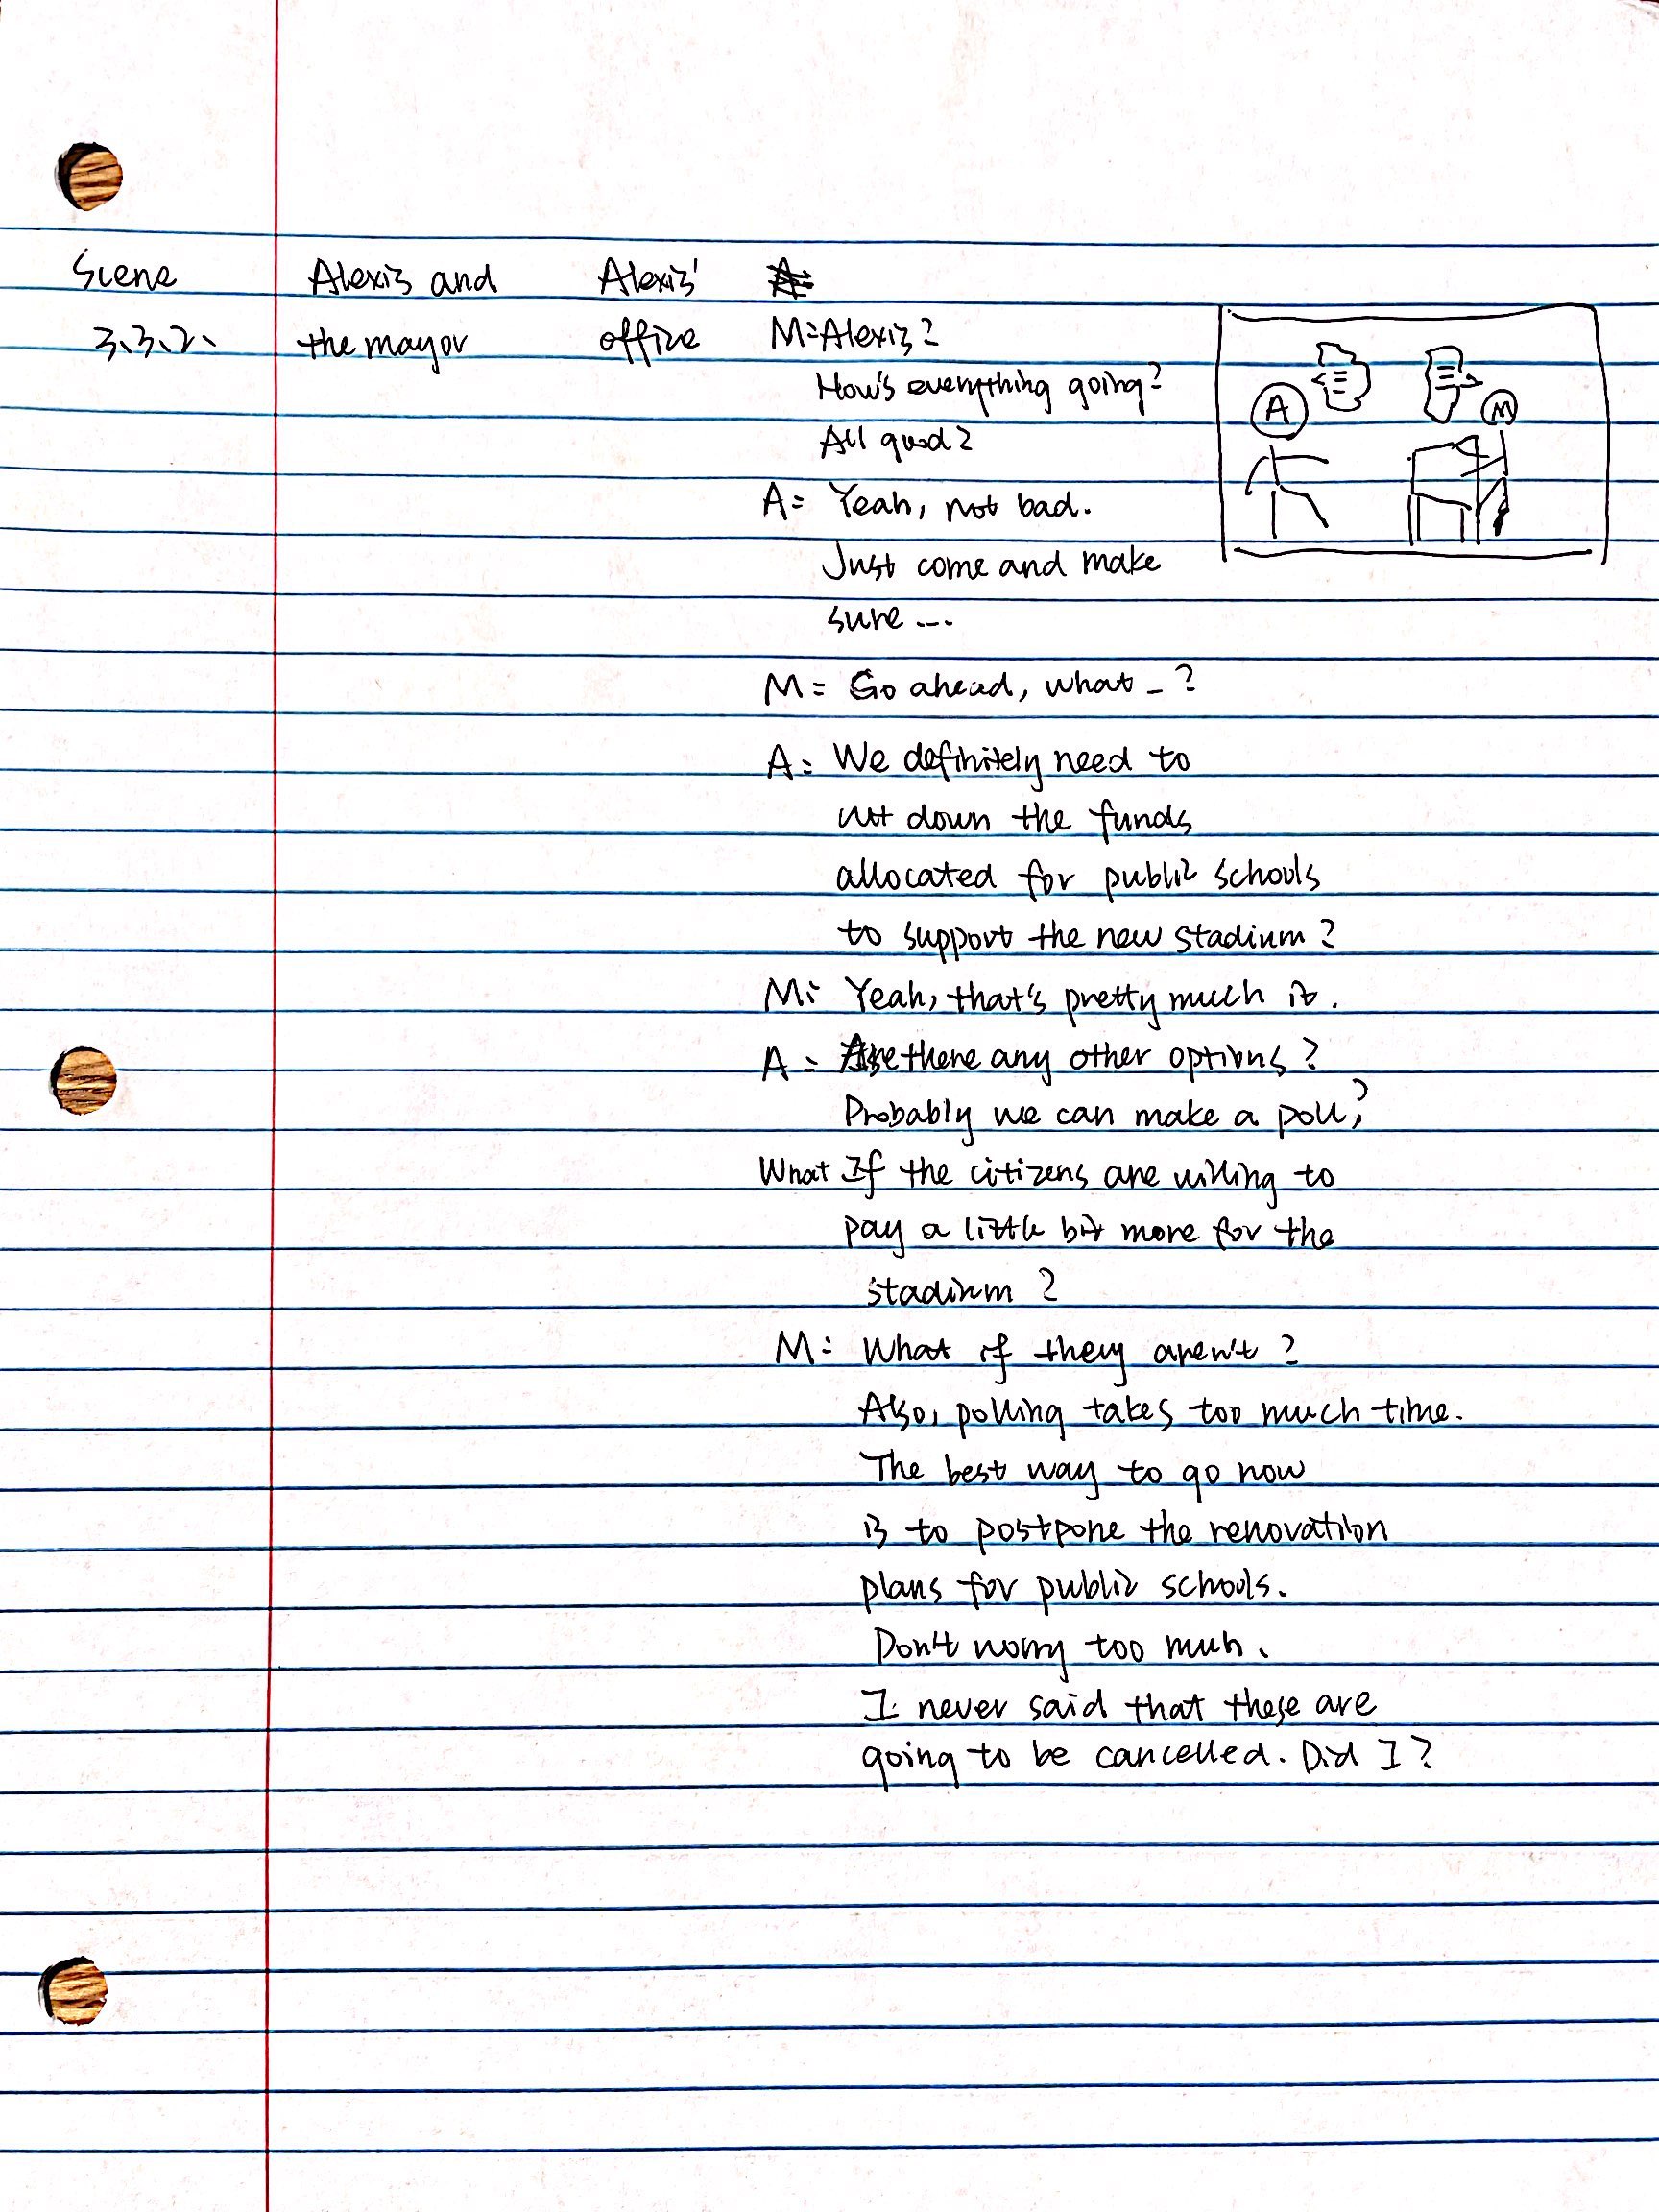 Scene Alexis and Alexis'
3.3.2. the mayor office M: Alexis?
How's everything going?
All good?
A: Yeah, not bad.
Just come and make
sure ...
M: Go ahead, what - ?
A: We definitely need to
cut down the funds
allocated for public schools
to support the new stadium?
M: Yeah, that's pretty much it.
A: Are there any other options?
Probably we can make a poll?
What If the citizens are willing to
pay a little bit more for the
stadium?
M: What if they aren't?
Also, polling takes too much time.
The best way to go now
is to postpone the renovation
plans for public schools.
Don't worry too much.
I never said that these are
going to be cancelled. Did I?
A
M